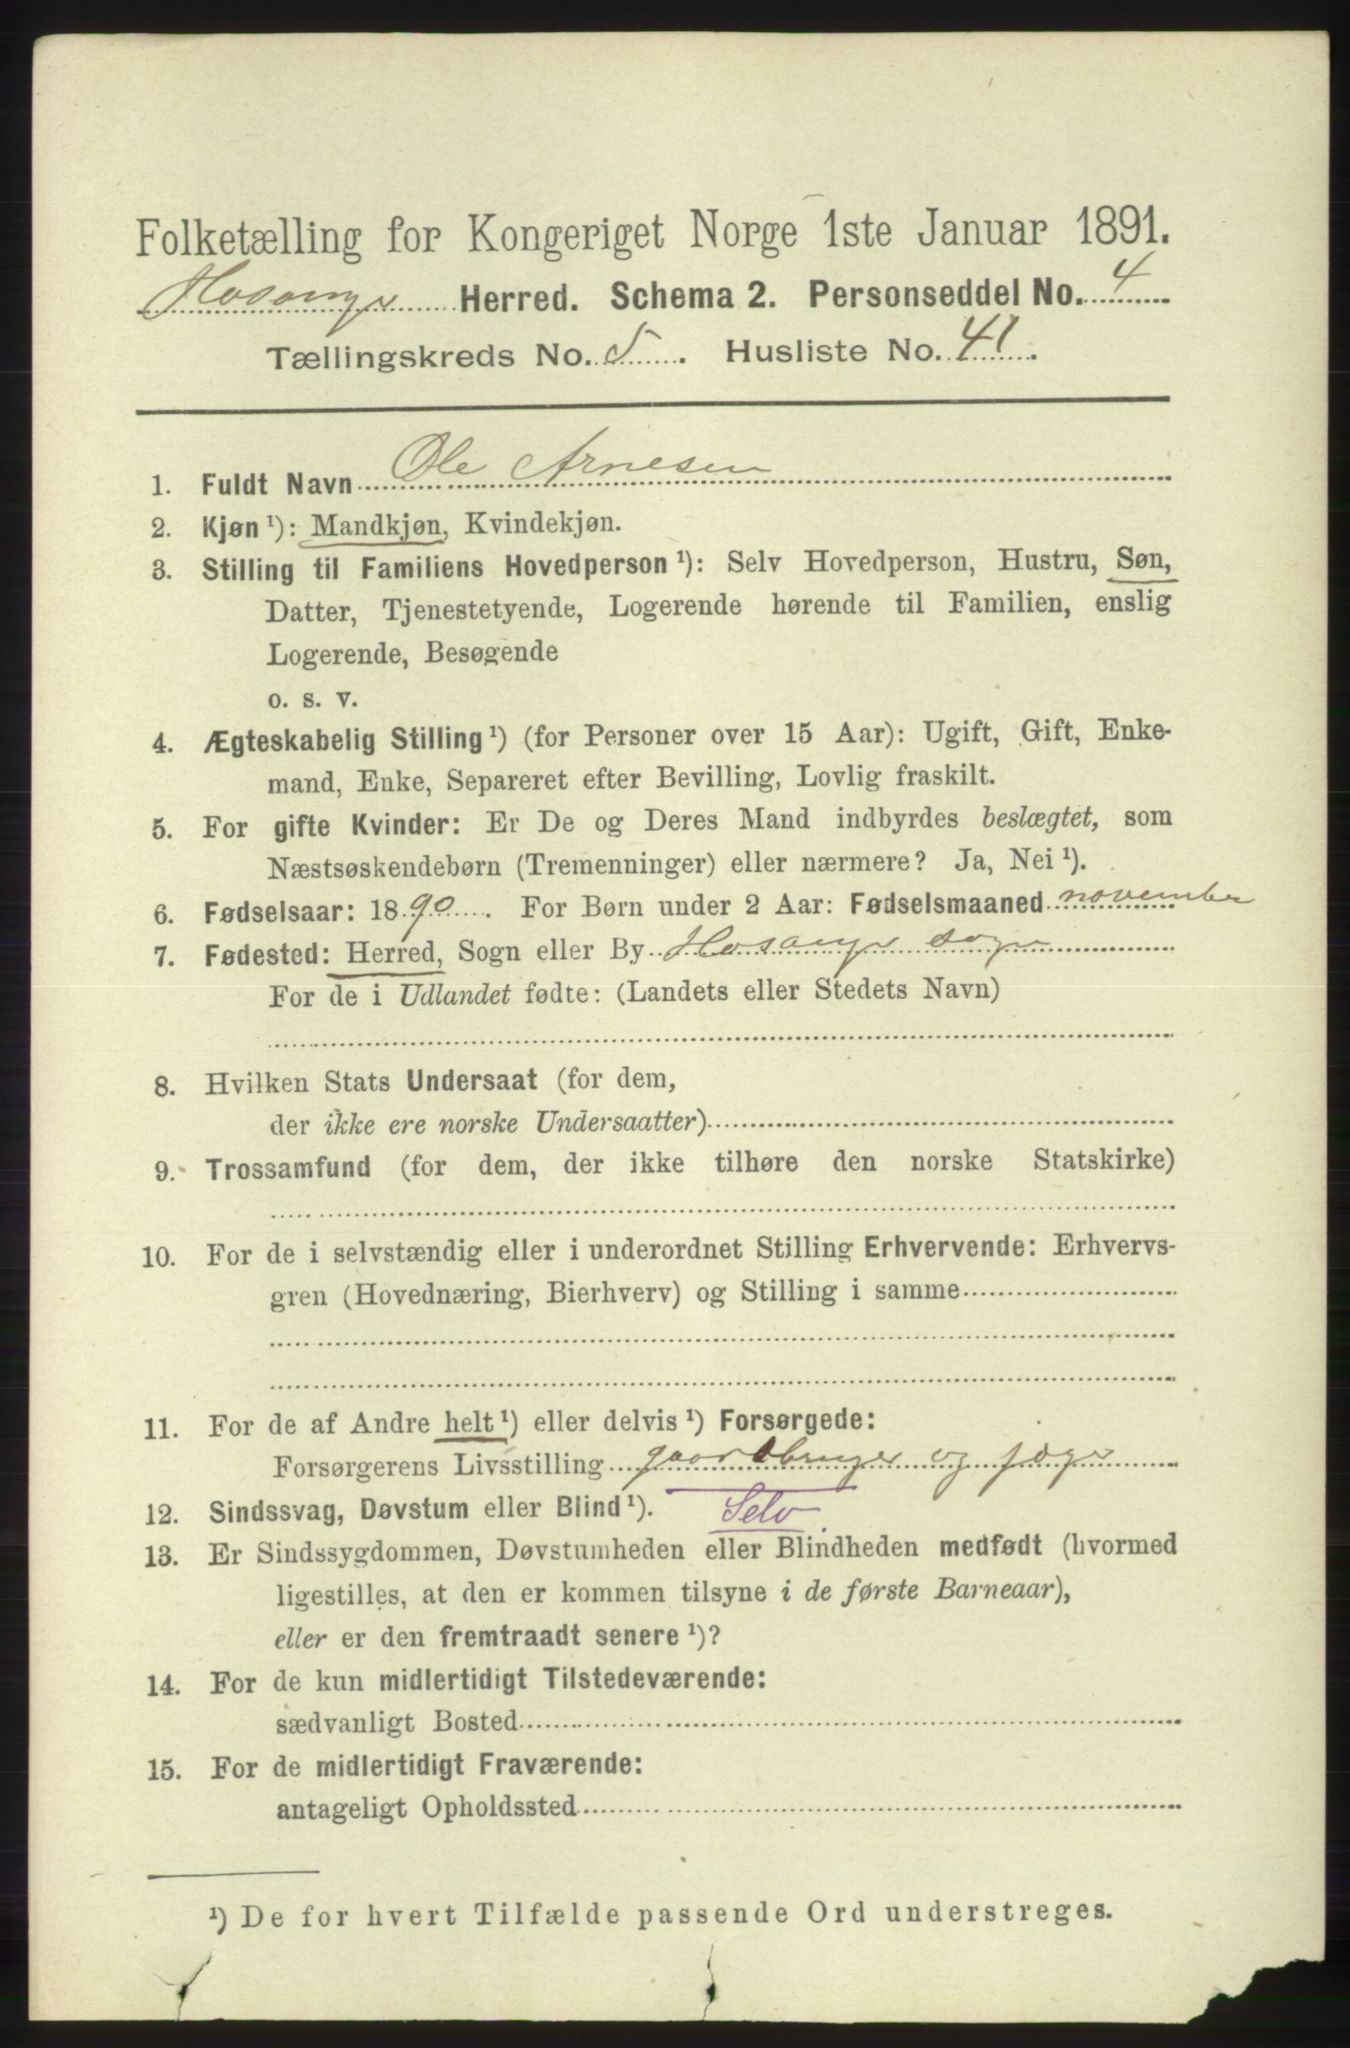 Folketælling for Kongeriget Norge 1ste Januar 1891.
Hosanger Herred. Schema 2. Personseddel No. 4
Tællingskreds No. 5. Husliste No. 41.
1. Fuldt Navn Ole Arnesen
2. Kjøn ¹): Mandkjøn, Kvindekjøn.
3. Stilling til Familiens Hovedperson ¹): Selv Hovedperson, Hustru, Søn,
Datter, Tjenestetyende, Logerende hørende til Familien, enslig
Logerende, Besøgende
o. s. v.
4. Ægteskabelig Stilling ¹) (for Personer over 15 Aar): Ugift, Gift, Enke-
mand, Enke, Separeret efter Bevilling, Lovlig fraskilt.
5. For gifte Kvinder: Er De og Deres Mand indbyrdes beslægtet, som
Næstsøskendebørn (Tremenninger) eller nærmere? Ja, Nei ¹).
6. Fødselsaar: 1890. For Børn under 2 Aar: Fødselsmaaned november
7. Fødested: Herred, Sogn eller By Hosanger sogn
For de i Udlandet fødte: (Landets eller Stedets Navn)
8. Hvilken Stats Undersaat (for dem,
der ikke ere norske Undersaatter)
9. Trossamfund (for dem, der ikke tilhøre den norske Statskirke)
10. For de i selvstændig eller i underordnet Stilling Erhvervende: Erhvervs-
gren (Hovednæring, Bierhverv) og Stilling i samme
11. For de af Andre helt ¹) eller delvis ¹) Forsørgede:
Forsørgerens Livsstilling gaardbruger og
12. Sindssvag, Døvstum eller Blind ¹). Selv
13. Er Sindssygdommen, Døvstumheden eller Blindheden medfødt (hvormed
ligestilles, at den er kommen tilsyne i de første Barneaar),
eller er den fremtraadt senere ¹)?
14. For de kun midlertidigt Tilstedeværende:
sædvanligt Bosted
15. For de midlertidigt Fraværende:
antageligt Opholdssted
¹) De for hvert Tilfælde passende Ord understreges.